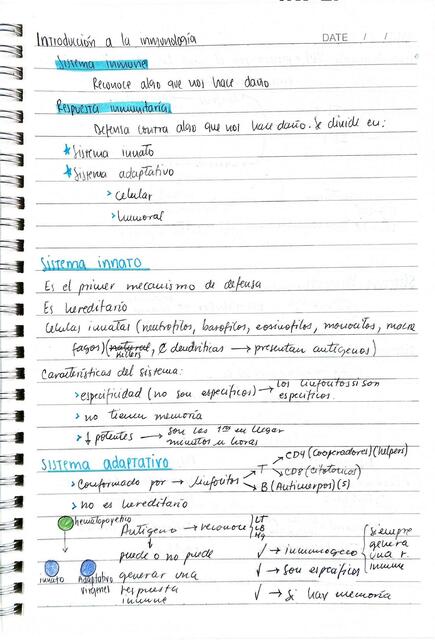 Introducción a la inmunología
DATE / /
Sistema inmune
Reconoce algo que nos hace daño
Respuesta inmunitaria
Defensa contra algo que nos hace daño. Se divide en:
* Sistema innato
* Sistema adaptativo
> Celular
> Humoral
Sistema innato
Es el primer mecanismo de defensa
Es hereditario
Celulas innatas (neutrofilos, basofilos, eosinofilos, monocitos, macro
fagos)(natural killers, ₡ dendriticas → presentan antigenos)
Caracteristicas del sistema:
> especificidad (no son especificos) → los linfocitos si son especificos.
> no tienen memoria
> ↓ potentes → son las 1ras en llegar minutos u horas
Sistema adaptativo
> Conformado por → linfocitos → T → CD4 (cooperadores)(helpers)
→ CD8 (citotoxicos)
→ B (Anticuerpos)(s)
> no es hereditario
hematopoyetico
innato
Adaptativo
virgenes
Antigeno → reconoce LT
LB
puede o no puede
generar una
respuesta
inmune
✓ → inmunogeno siempre genera una r. inmune
✓ → son especificos
✓ → si hay memoria